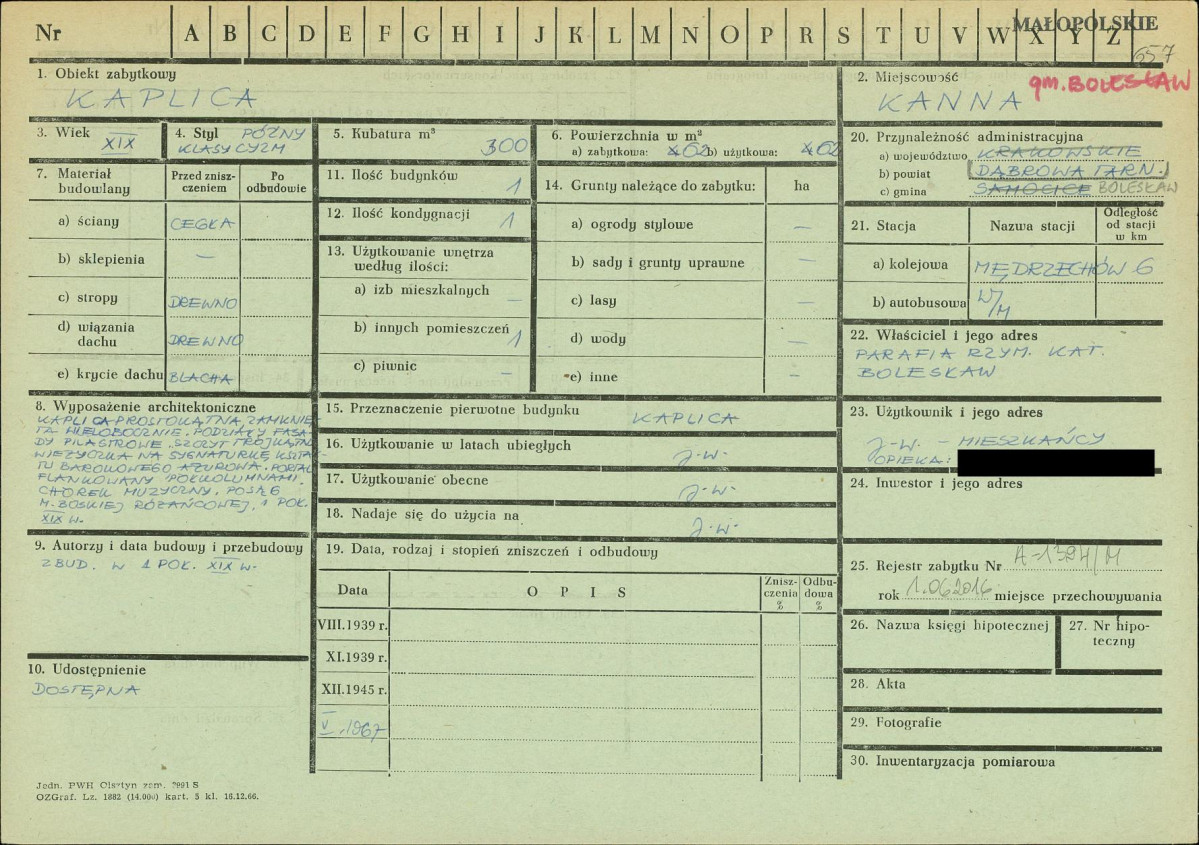 Nr A B C D E F G H I J K L M N O P R S T U V W X Y Z
MAŁOPOLSKIE
657
1. Obiekt zabytkowy
KAPLICA
2. Miejscowość
KANNA
gm. BOLESŁAW
3. Wiek
XIX
4. Styl PÓŹNY
KLASYCYZM
5. Kubatura m³
300
6. Powierzchnia w m²
a) zabytkowa: 62 b) użytkowa: 62
7. Materiał budowlany
Przed zniszczeniem
Po odbudowie
a) ściany CEGŁA
b) sklepienia —
c) stropy DREWNO
d) wiązania dachu DREWNO
e) krycie dachu BLACHA
8. Wyposażenie architektoniczne
KAPLICA PROSTOKĄTNA, ZAMKNIĘ-
TA WIELOBOCZNIE. PODZIAŁY FASA-
DY PILASTROWE. SZCZYT TRÓJKĄTNY
WIEŻYCZKA NA SYGNATURKĘ KSZTAŁ-
TU BAROKOWEGO AŻUROWA. PORTAL
FLANKOWANY PÓŁKOLUMNAMI.
CHÓREK MUZYCZNY. POSĄG
M. BOSKIEJ RÓŻAŃCOWEJ, 1 POŁ.
XIX W.
9. Autorzy i data budowy i przebudowy
ZBUD. W 1 POŁ. XIX W.
10. Udostępnienie
DOSTĘPNA
11. Ilość budynków 1
12. Ilość kondygnacji 1
13. Użytkowanie wnętrza według ilości:
a) izb mieszkalnych —
b) innych pomieszczeń 1
c) piwnic —
14. Grunty należące do zabytku: ha
a) ogrody stylowe —
b) sady i grunty uprawne —
c) lasy —
d) wody —
e) inne —
15. Przeznaczenie pierwotne budynku KAPLICA
16. Użytkowanie w latach ubiegłych J.W.
17. Użytkowanie obecne J.W.
18. Nadaje się do użycia na J.W.
19. Data, rodzaj i stopień zniszczeń i odbudowy
Data
OPIS
Zniszczenia %
Odbudowa %
VIII.1939 r.
XI.1939 r.
XII.1945 r.
V.1967
20. Przynależność administracyjna
a) województwo KRAKOWSKIE
b) powiat DĄBROWA TARN.
c) gmina SAMOCICE BOLESŁAW
21. Stacja
Nazwa stacji
Odległość od stacji w km
a) kolejowa MĘDRZECHÓW 6
b) autobusowa W/M
22. Właściciel i jego adres
PARAFIA RZYM. KAT.
BOLESŁAW
23. Użytkownik i jego adres
J.W. – MIESZKAŃCY
OPIEKA:
24. Inwestor i jego adres
25. Rejestr zabytku Nr A-1394/M
rok 1.06.2016 miejsce przechowywania
26. Nazwa księgi hipotecznej
27. Nr hipoteczny
28. Akta
29. Fotografie
30. Inwentaryzacja pomiarowa
Jedn. PWH Olsztyn zam. 2991 S
OZGraf. Lz. 1882 (14.000) kart. 5 kl. 16.12.66.